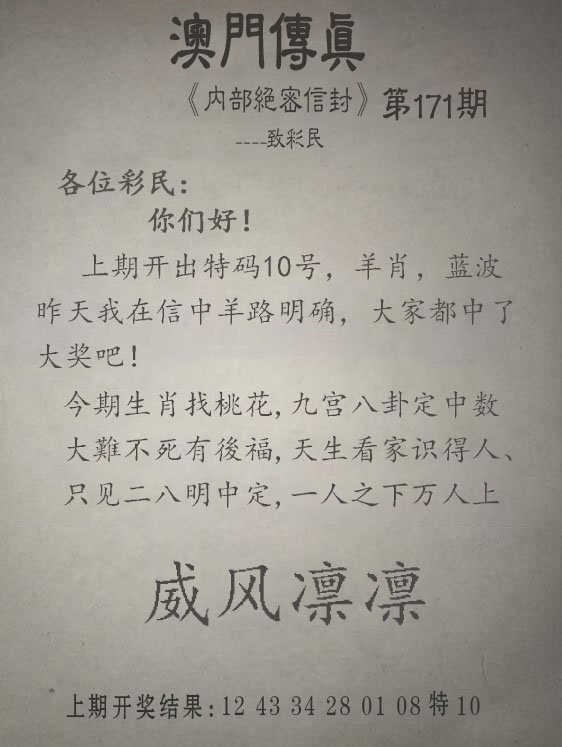 澳門傳眞
《内部絕密信封》第171期
----致彩民
各位彩民:
你们好!
上期开出特码10号, 羊肖, 蓝波
昨天我在信中羊路明确, 大家都中了
大奖吧!
今期生肖找桃花, 九宫八卦定中数
大難不死有後福, 天生看家识得人、
只见二八明中定, 一人之下万人上
威风凛凛
上期开奖结果: 12 43 34 28 01 08 特 10